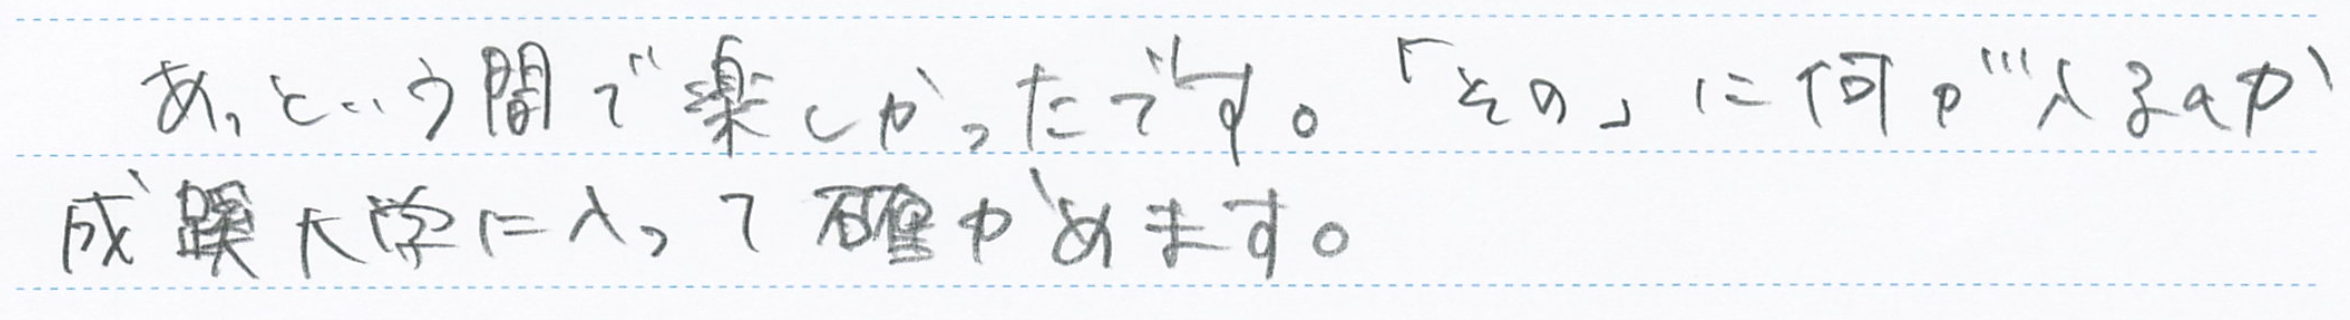 あっという間で楽しかったです。「その」に何が入るのか
成蹊大学に入って確かめます。